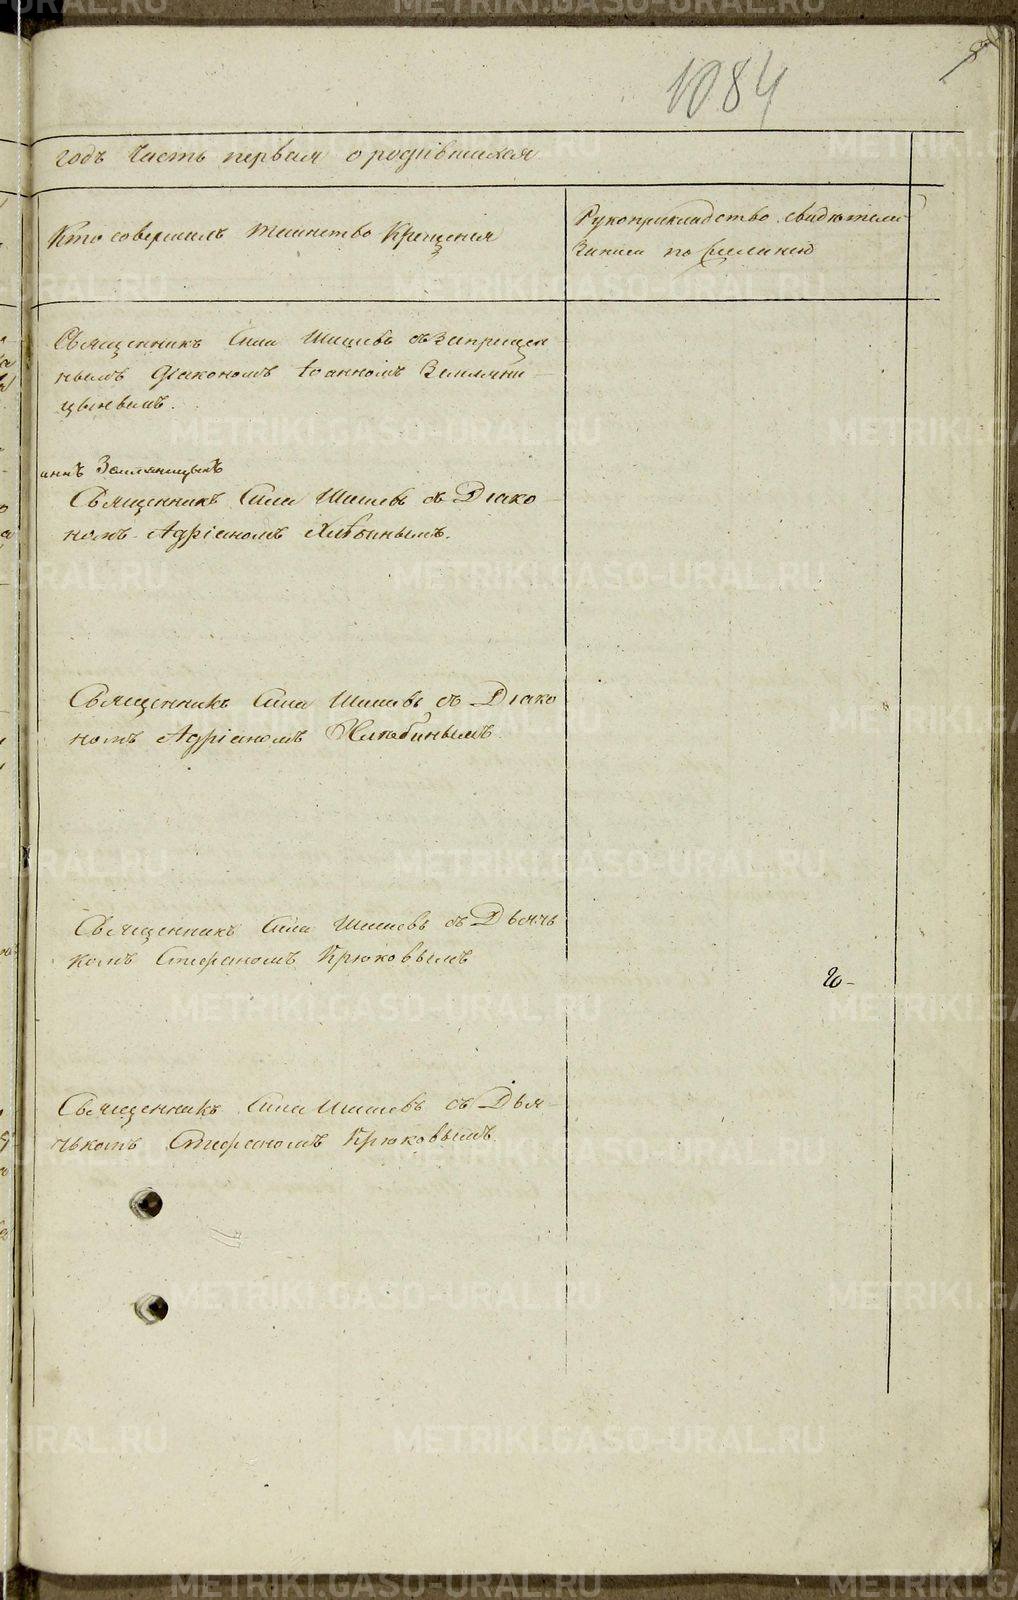 1084
годъ Часть первая о родившихся
Кто совершилъ таинство Крещенія
Рукоприкладство свидѣтелей
записи по желанію
Священникъ Сила Шишевъ съ запрещен
нымъ Діакономъ Іоанномъ Земляни-
цынымъ.
аннъ Земляницынъ
Священникъ Сила Шишевъ съ Діако
номъ Адріаномъ Хлѣбинымъ.
Священникъ Сила Шишевъ съ Діако
номъ Адріаномъ Хлѣбинымъ
Священникъ Сила Шишевъ съ Дьячь
комъ Стефаномъ Крюковымъ
Священникъ Сила Шишевъ съ Дья-
чькомъ Стефаномъ Крюковымъ.
METRIKI.GASO-URAL.RU